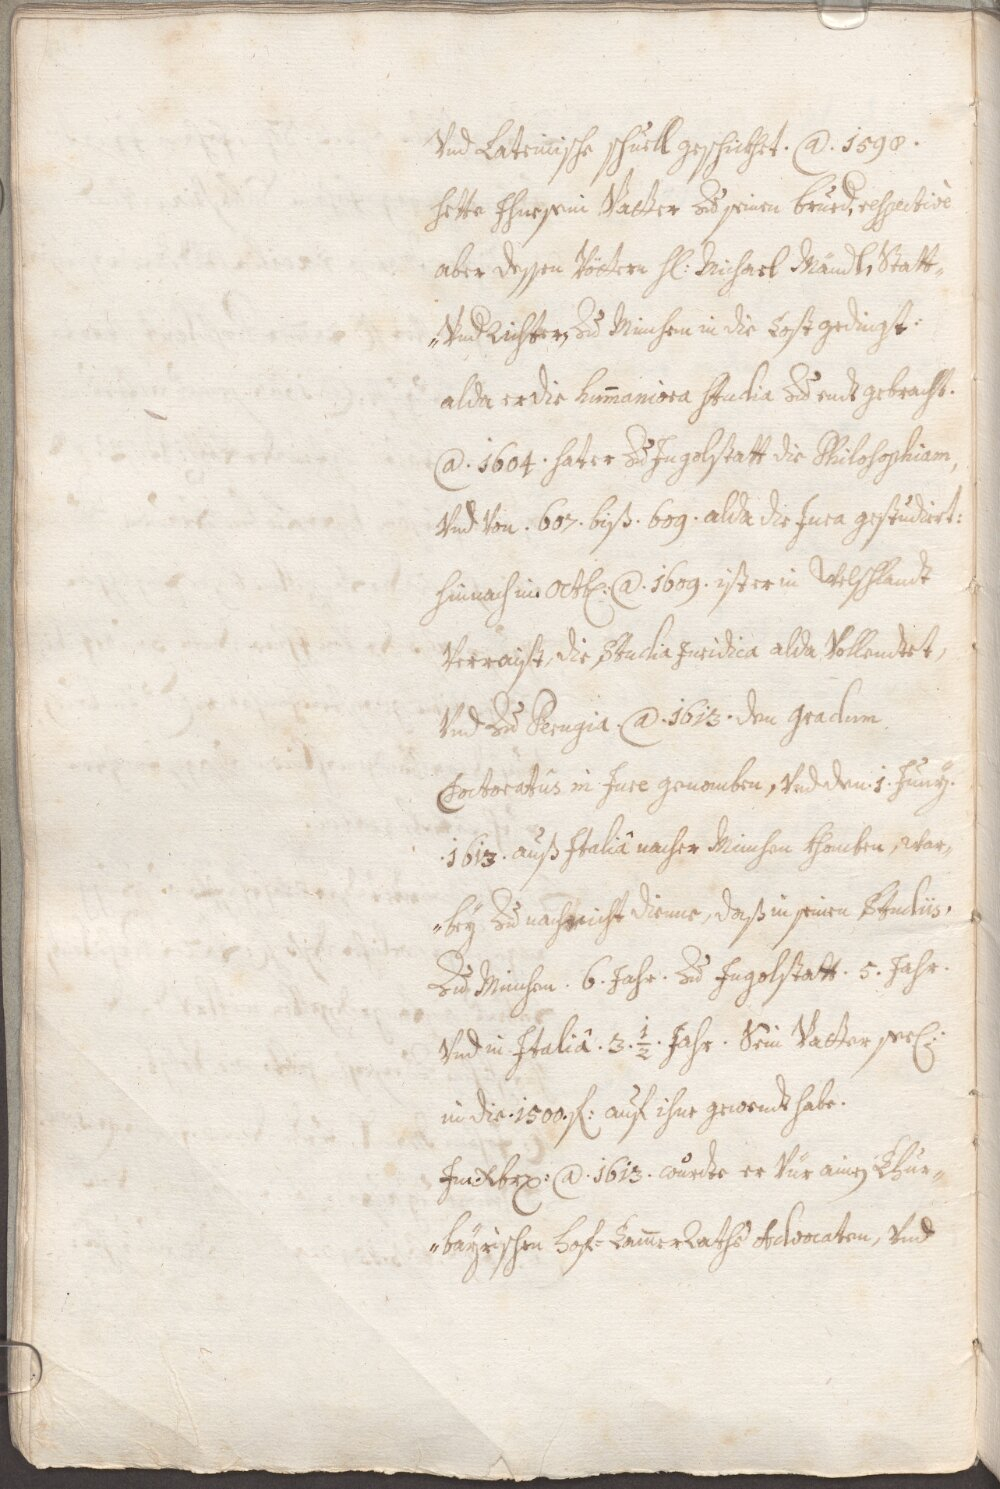 Vnd Lateinische schuell geschickhet. @. 1598.
hette Ihne sein Vatter Zu seinen brued. respectivè
aber dessen Vöttern H: Michael Mändl, Statt-
„Vnd Richter, Zu München in die Cost gedingt:
alda er die humaniora studia Zu endt gebracht.
@. 1604. hat er Zu Ingolstatt die Philosophiam,
Vnd Von. 607. biß. 609. alda die Jura gestudiert:
hinnach im Octb: @. 1609. ist er in Welschlandt
Verraist, die Studia Juridica alda Vollendtet,
Vnd Zu Perugia. @. 1613. den gradum
Doctoratus in Jure genomben, Vnd den. 1. Junÿ.
.1613. auß Italiâ nacher München khomben, war„
„beÿ Zu nachricht dienne, daß in seinen Studiis,
Zu München. 6. Jahr. Zu Ingolstatt. 5. Jahr.
Vnd in Italiâ. 3. 1/2. Jahr. Sein Vatter seel:
in die. 1500. f: auf ihne gewendt habe.
Im Xbrx: @. 1613. wurdte er Vür ainen Chur„
„baÿrischen hof-Cammer Raths Advocaten, Vnd